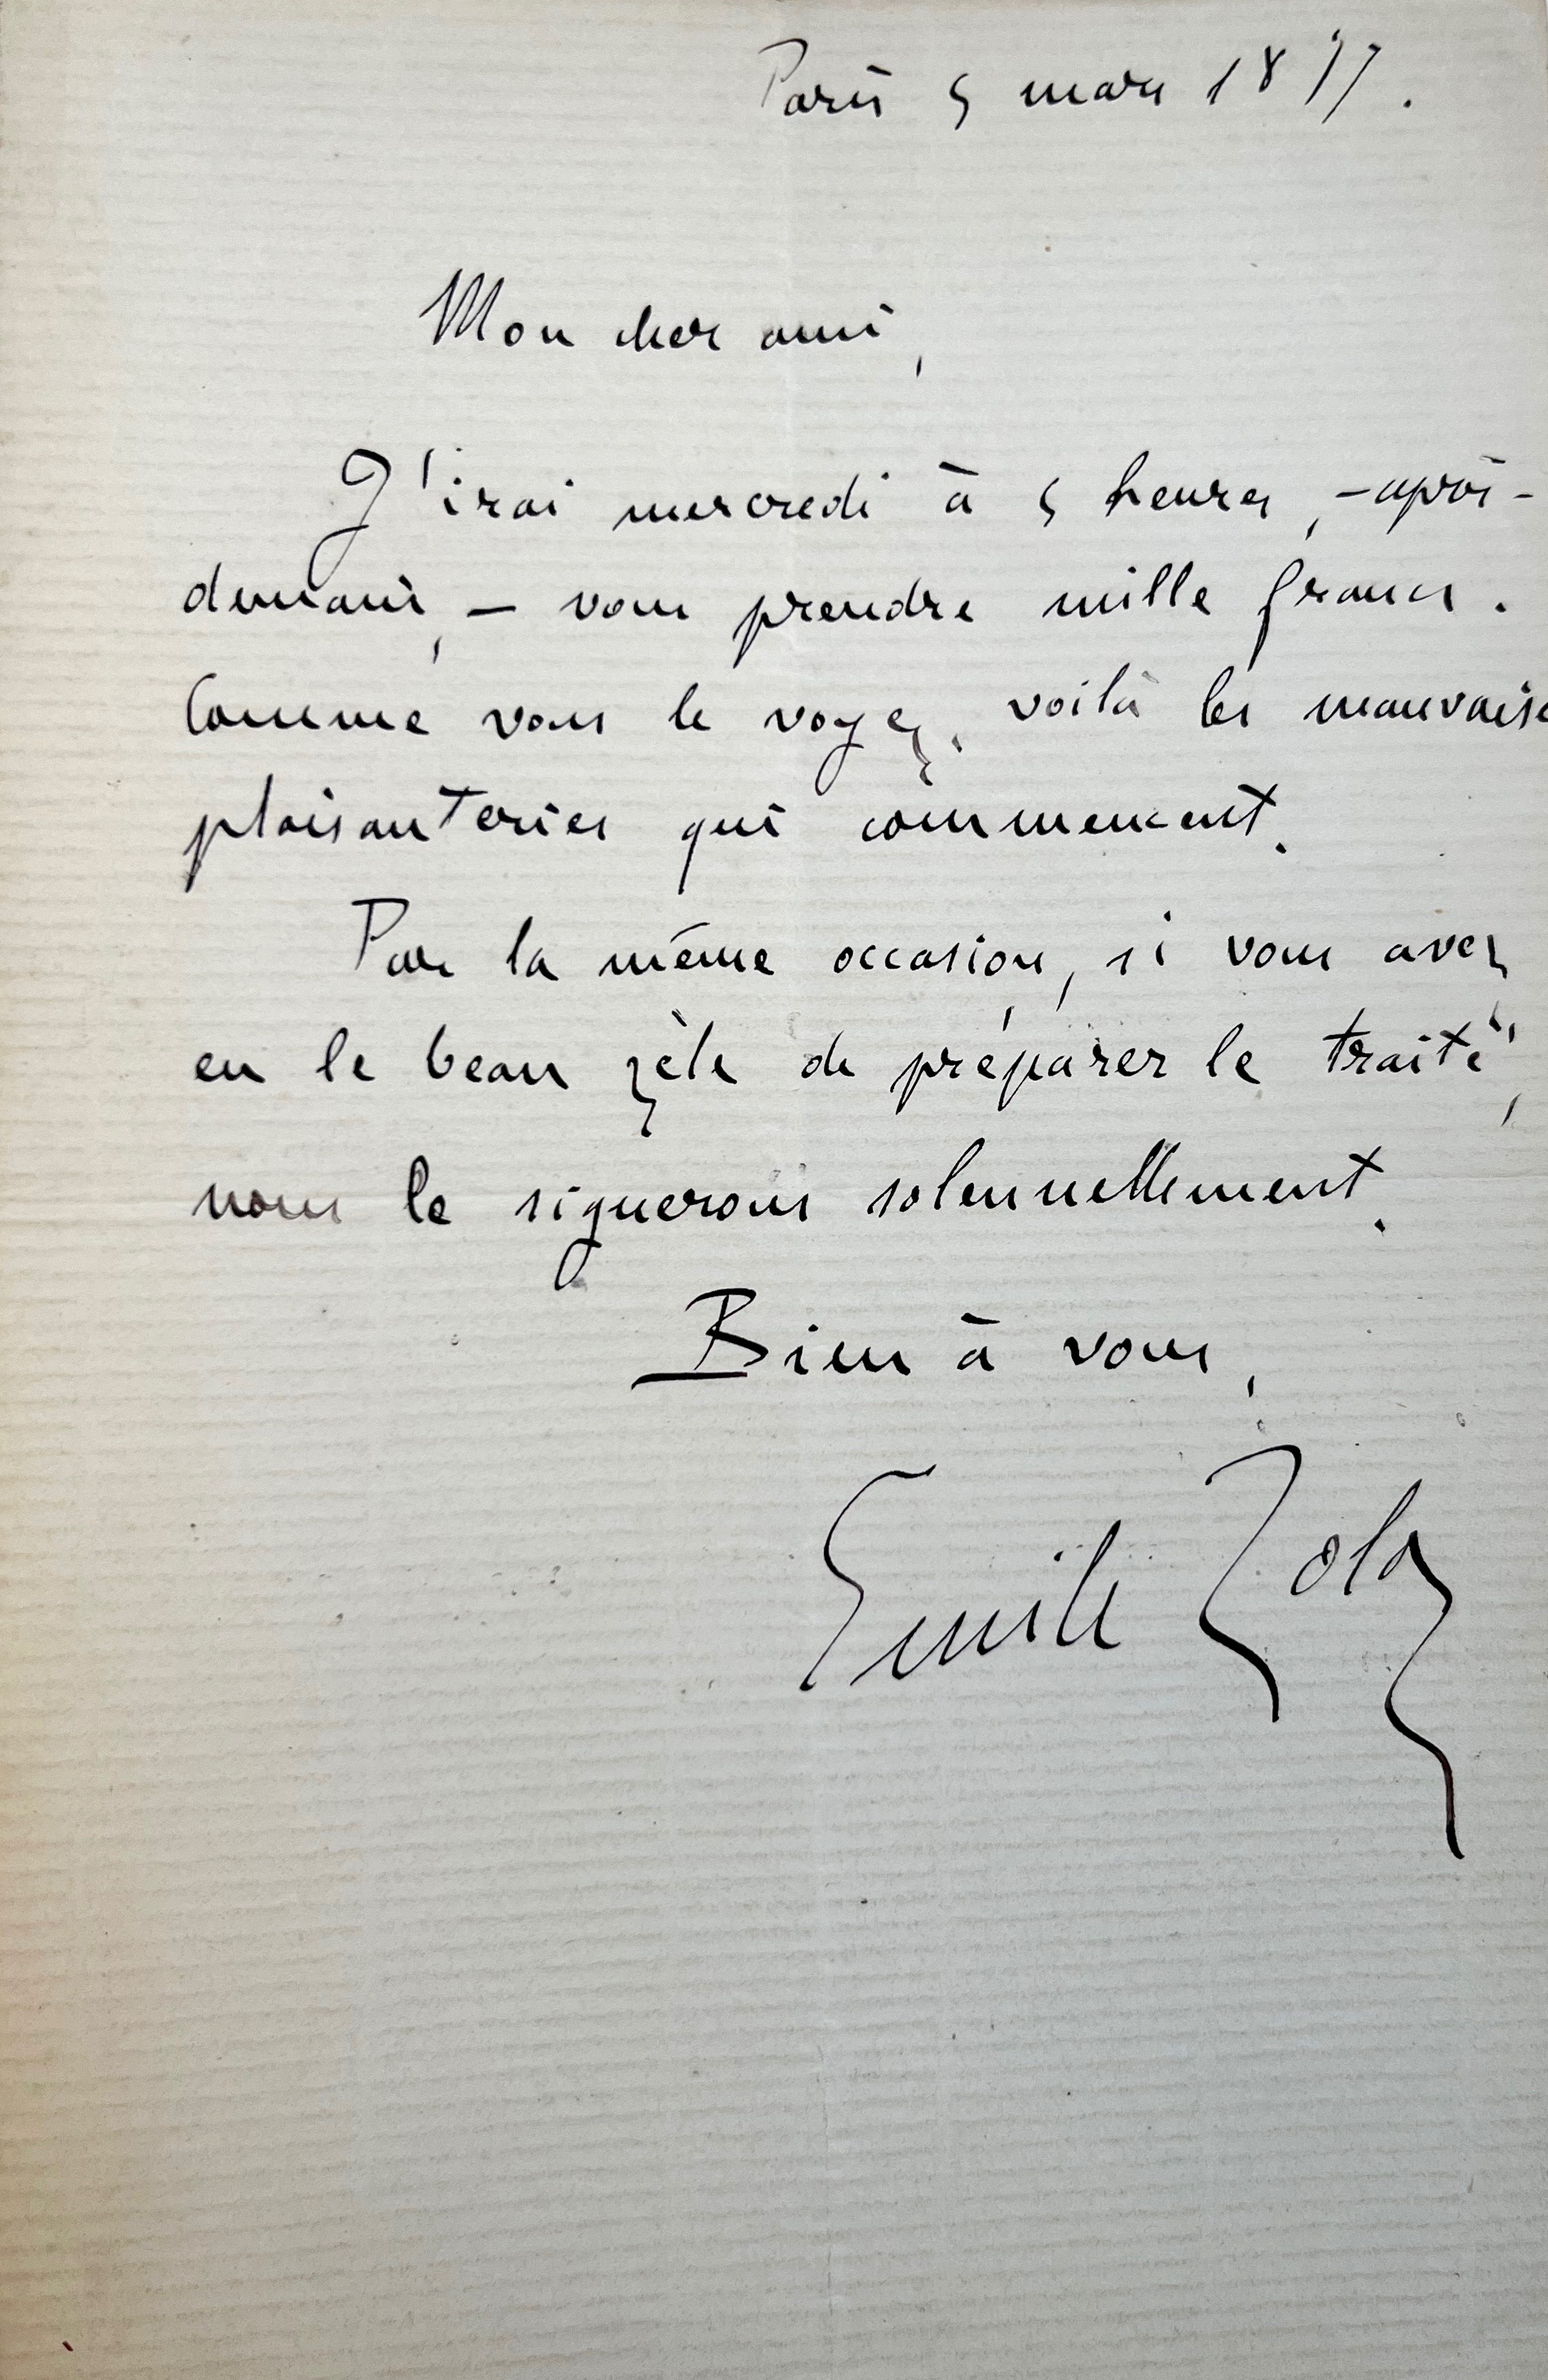 Paris 5 mars 1877.
Mon cher ami,
J'irai mercredi à 5 heures, – après-
demain, – vous prendre mille francs.
Comme vous le voyez, voilà les mauvaise
plaisanteries qui commencent.
Par la même occasion, si vous avez
eu le beau zèle de préparer le traité,
nous le signerons solennellement.
Bien à vous,
Emile Zola